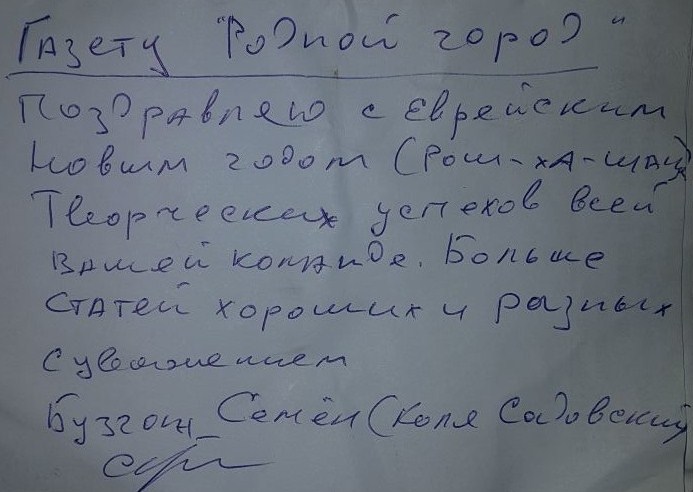 Газету "Родной город"
Поздравляю с Еврейским
Новым годом (Рош-ха-шан
Творческих успехов всей
вашей команде. Больше
статей хороших и разных
С уважением
Бузган Семён (Коля Садовский)